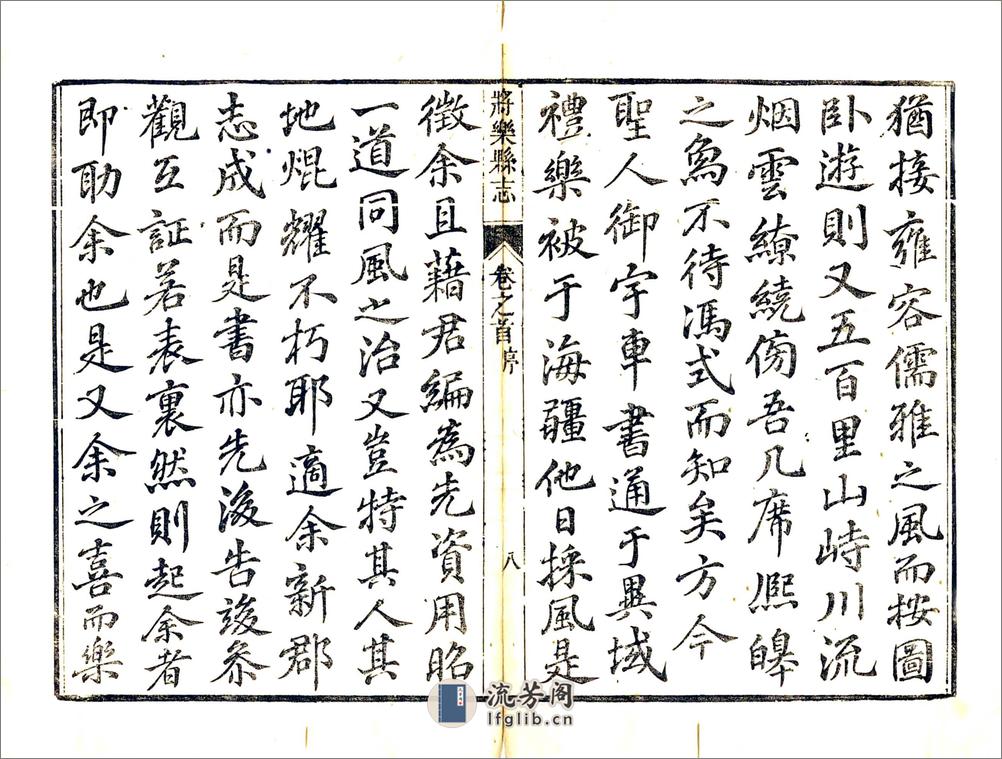 猶接雍容儒雅之風而按圖
卧遊則又五百里山峙川流
烟雲繚繞傍吾几席熈皥
之象不待馮式而知矣方今
聖人御宇車書通于異域
禮樂被于海疆他日採風是
將樂縣志
卷之首
序
八
徵余且藉君編為先資用昭
一道同風之治又豈特其人其
地焜耀不朽耶適余新郡
志成而是書亦先後告竣叅
觀互証若表裏然則起余者
即助余也是又余之喜而樂
流芳阁
lfglib.cn